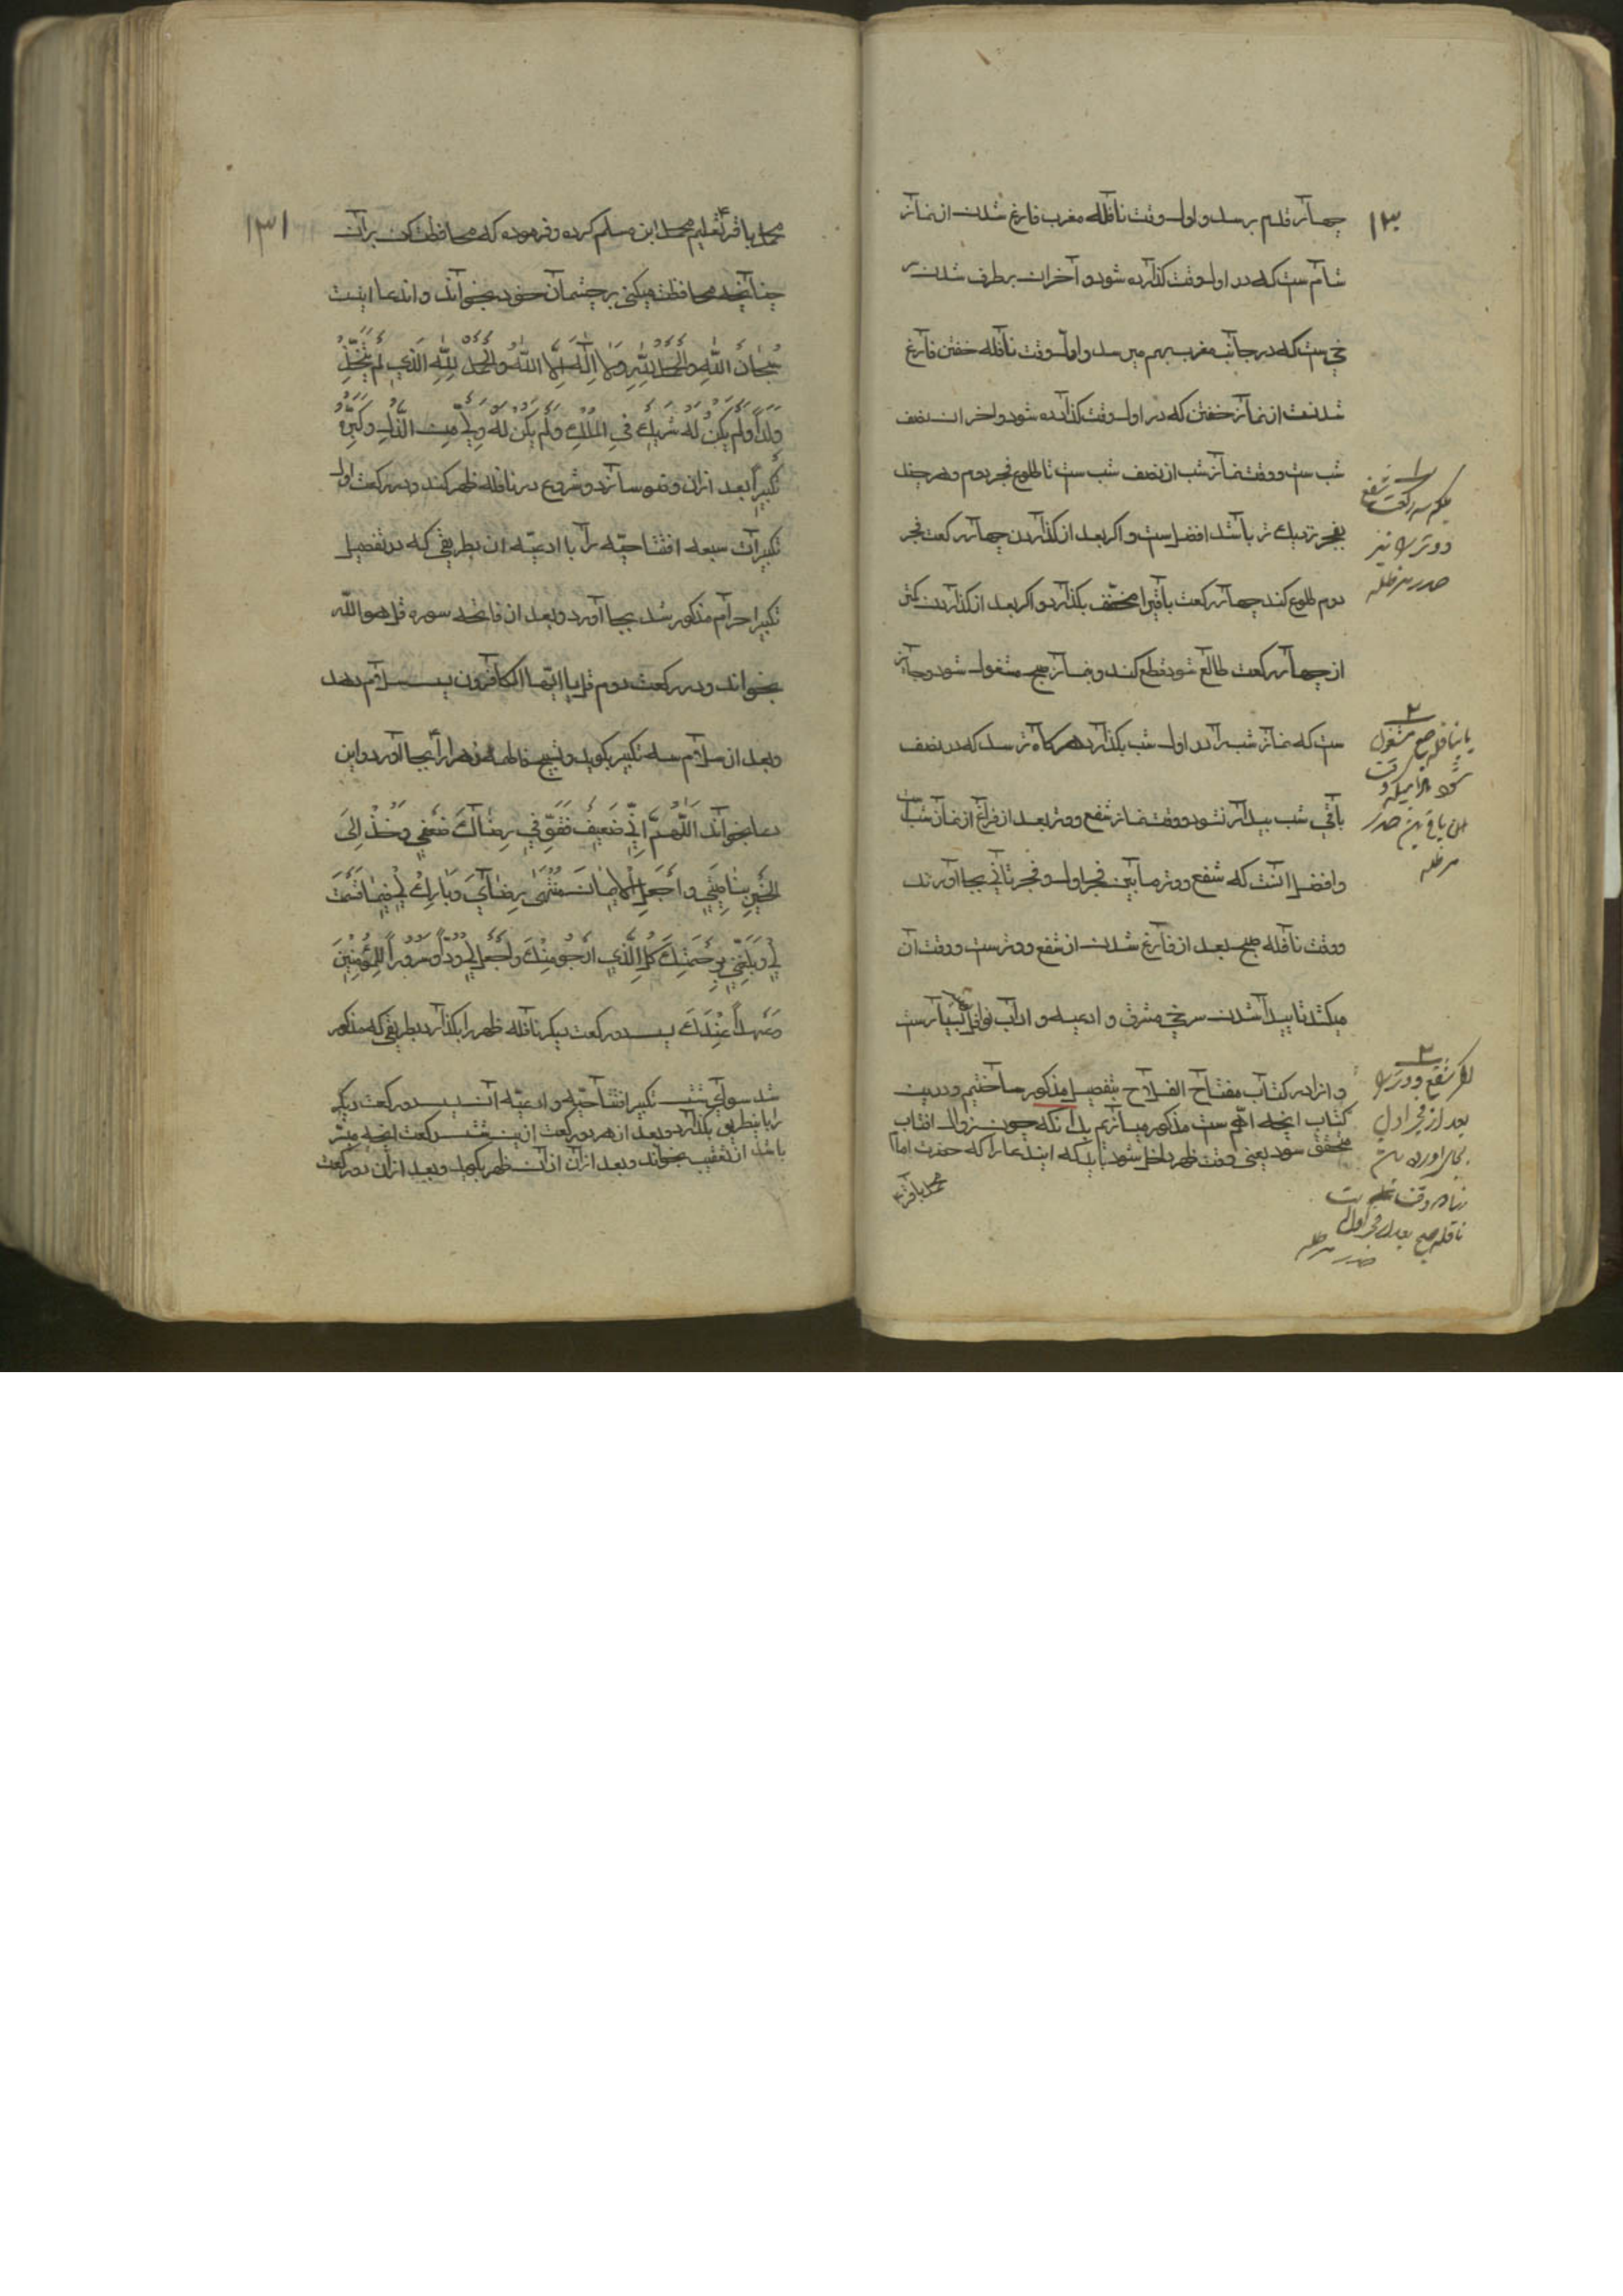 ۱۳۰
چهار قدم برسد و اول وقت نافله مغرب فارغ شدن از نماز
شام ست که در اول وقت کذارده شود و آخر آن برطرف شدن سر
خی ست که در جانب مغرب بهم میرسد و اول وقت نافله خفتن فارغ
شدنت از نماز خفتن که در اول وقت کذارده شود و اخر آن نصف
شب ست و وقت نماز شب از نصف شب ست تا طلوع فجر دوم و هر چند
بفجر نزدیک تر باشد افضل ست و اکر بعد از کذاردن چهار رکعت فجر
دوم طلوع کند چهار رکعت باقیرا مخفف بکذارد و اکر بعد از کذاردن کمتر
از چهار رکعت طالع شود قطع کند و بنماز صبح مشغول شود و جائز
ست که نماز شب را در اول شب بکذارد هر کاه ترسد که در نصف
باقی شب بیدار نشود و وقت نماز شفع و وتر بعد از فراغ از نماز شب ست
و افضل انست که شفع و وتر ما بین فجر اول و فجر ثانی بجا آورند
و وقت نافله صبح بعد از فارغ شدن از شفع و وتر ست و وقت آن
میکشد تا پیدا شدن سرخی مشرق و ادعیه و اداب نوافل بسیار ست
و انرا در کتاب مفتاح الفلاح بتفصیل مذکور ساختیم و درین
کتاب انچه اهم ست مذکور میسازیم بدانکه چون زوال افتاب
متحقق شود یعنی وقت ظهر داخل شود باید که این دعا را که حضرت امام
محمد باقر ع
۱
بلکه سه رکعت شفع
و وتر را نیز
صدر مد ظله
۲
یا بنافله صبح مشغول
شود
صدر
مد ظله
۳
اکر شفع و وتر را
بعد از فجر اول
بجای اورد
نافله صبح بعد از فجر اول
صدر مد ظله
۱۳۱
محمد باقر ع تعلیم محمد ابن مسلم کرده و فرموده که محافظت کن بر آن
چنانچه محافظت میکنی بر چشمان خود بخواند و اندعا اینست
سُبحانَ اللهِ والحمدُ للهِ وَلا اِلهَ اِلّا اللهُ والحَمدُ لِلّهِ الّذی لَم یَتَّخِذْ
وَلَداً وَلَم یَکُنْ لَهُ شَریكٌ فی المُلْكِ وَلَم یَکُنْ لَهُ وَلِیٌّ مِنَ الذُّلِّ وَکَبِّرْهُ
تَکبیراً بعد ازان وضو سازد و شروع در نافله ظهر کند و در رکعت اول
تکبیرات سبعه افتتاحیّه را با ادعیّه ان بطریقی که در تفصیل
تکبیر احرام مذکور شد بجا آورد و بعد ان فاتحه سوره قل هو الله
بخواند و در رکعت دوم قل یا ایها الکافرون پس سلام دهد
و بعد ان سلام سه تکبیر بکوید و تسبیح فاطمه زهرا را ع بجا آورد و این
دعا بخواند اللّهُمَّ اِنّی ضَعیفٌ فَقَوِّ فی رِضاكَ ضَعْفی وَخُذْ اِلیَ
الخَیرِ بِناصِیَتی وَاجْعَلِ الْایمانَ مُنْتَهیٰ رِضایَ وَبارِكْ لی فیما قَسَمْتَ
لی وَبَلِّغْنی بِرَحْمَتِكَ کُلَّ الَّذی اَرْجُو مِنْكَ وَاجْعَلْ لی وُدّاً وَسُرُوراً لِلمُؤمِنینَ
وَعَهْداً عِنْدَكَ پس دو رکعت دیکر نافله ظهر را بکذارد بطریقی که مذکور
شد سوای شش تکبیر افتتاحیّه و ادعیّه آن پس دو رکعت دیکر
را باینطریق بکذارد و بعد از هر دو رکعت ازین شش رکعت انچه میسّر
باشد از تعقیب بخواند و بعد ازان اذان ظهر بکوید و بعد ازان دو رکعت